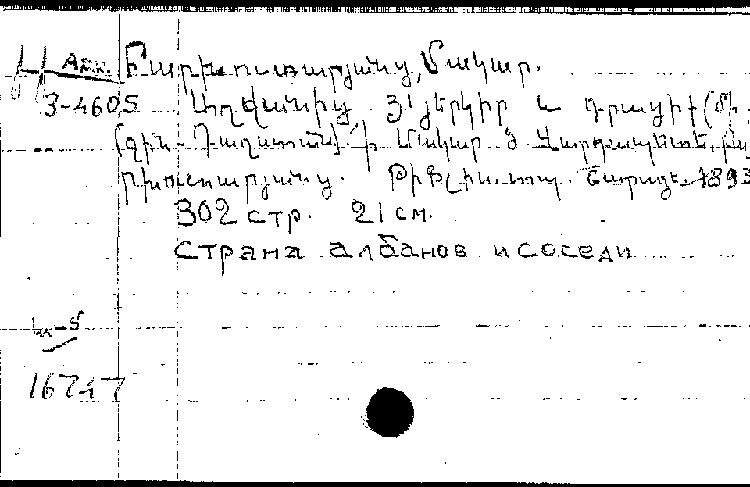 Арм. Բարխուտարյանց, Մակար.
3-4605 Աղվանից երկիր և դրացիք (Մի-
ջին-Դաղստան) Մակար Վարդապետ Բա
րխուտարյանց. Թիֆլիս, տպ. Շարաձե, 1893
302 стр. 21 см.
страна албанов и соседи
16747